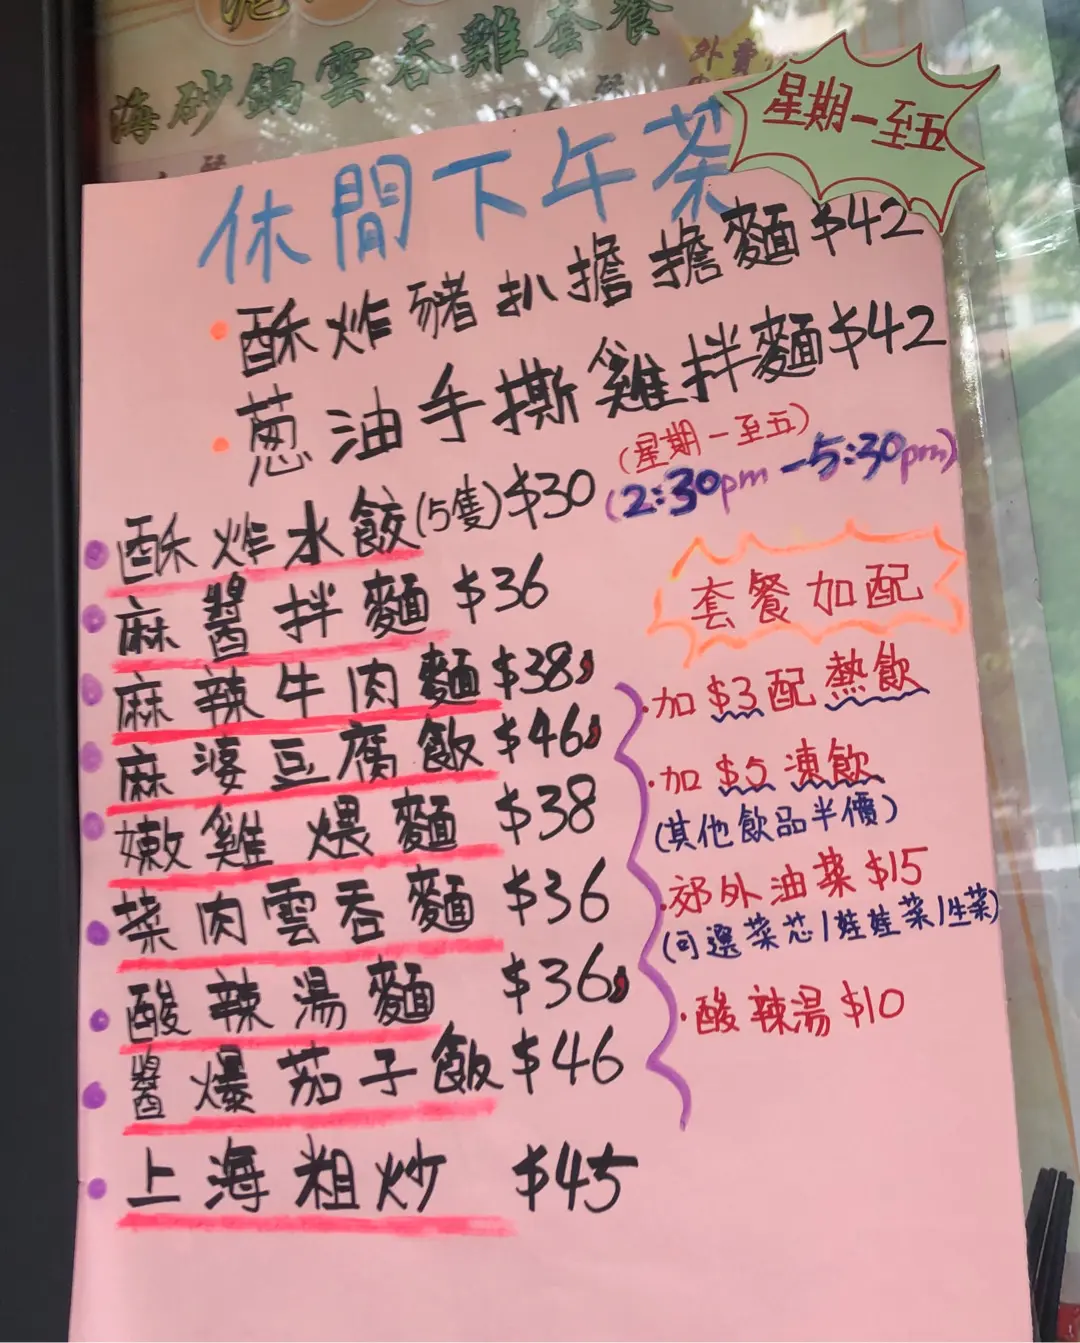 海砂鍋雲吞雞套餐
外賣
星期一至五
休閒下午茶
酥炸豬扒擔擔麵$42
蔥油手撕雞拌麵$42
(星期一至五)
(2:30pm-5:30pm)
酥炸水餃(5隻)$30
麻醬拌麵 $36
麻辣牛肉麵$38
麻婆豆腐飯$46
嫩雞煨麵 $38
菜肉雲吞麵 $36
酸辣湯麵 $36
醬爆茄子飯$46
上海粗炒 $45
套餐加配
加$3配熱飲
加$5凍飲
(其他飲品半價)
郊外油菜$15
(可選菜芯/娃娃菜/生菜)
酸辣湯$10